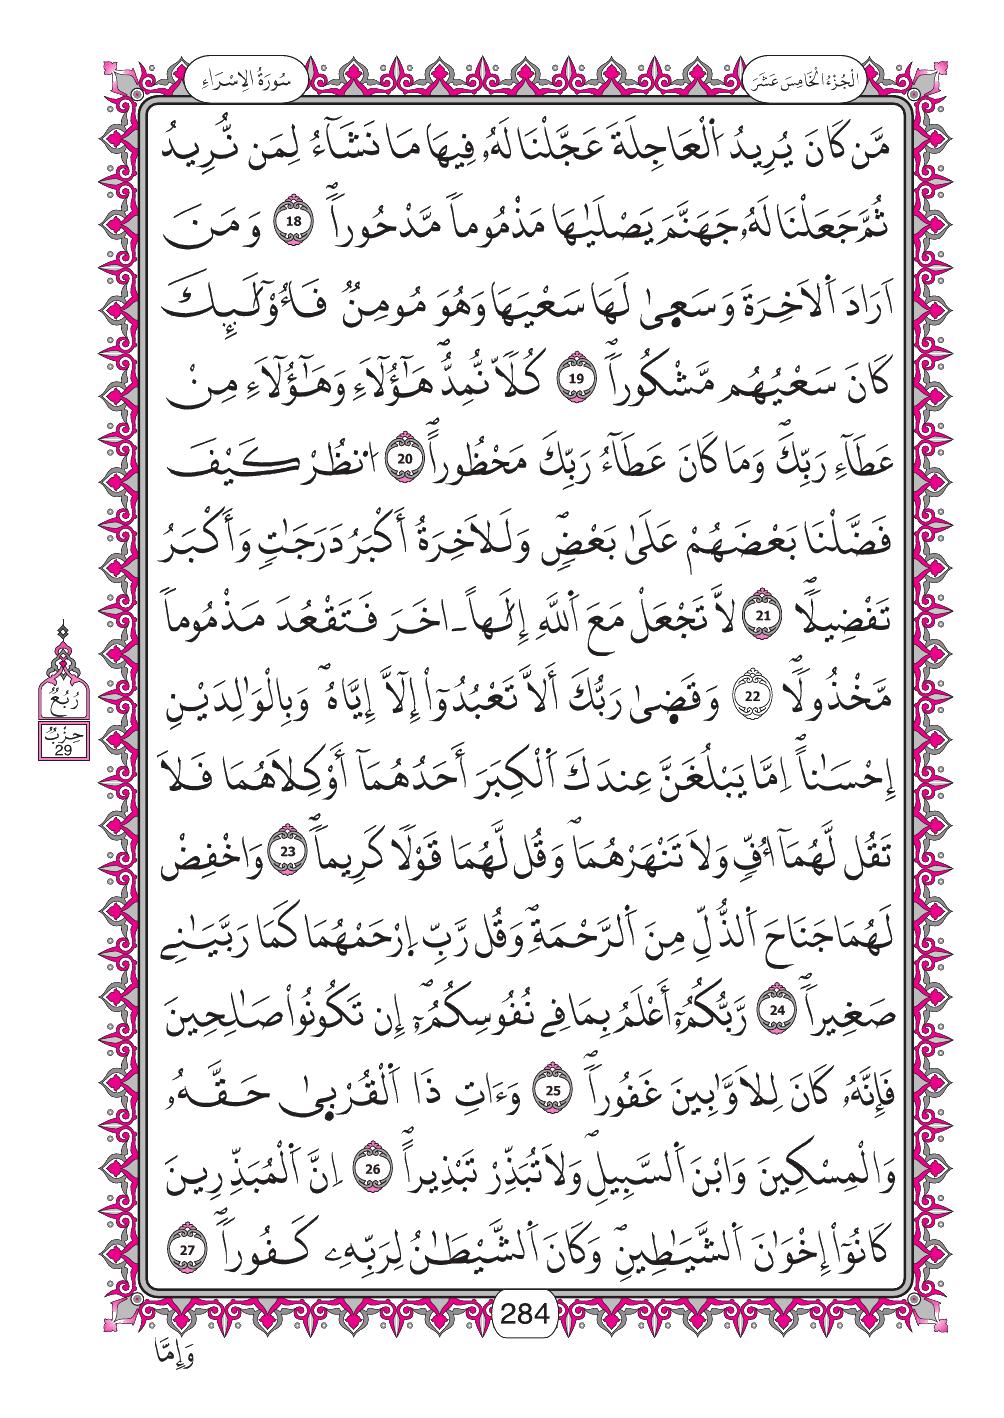 الْجُزْءُ الْخَامِسَ عَشَرَ
سُورَةُ الْإِسْرَاءِ
مَّن كَانَ يُرِيدُ اُ۬لْعَاجِلَةَ عَجَّلْنَا لَهُۥ فِيهَا مَا نَشَآءُ لِمَن نُّرِيدُ
ثُمَّ جَعَلْنَا لَهُۥ جَهَنَّمَ يَصْلَيٰهَا مَذْمُوماٗ مَّدْحُوراٗۖ 18 وَمَنَ
اَرَادَ اَ۬لَاخِرَةَ وَسَع۪يٰ لَهَا سَعْيَهَا وَهُوَ مُومِنٞ فَأُوْلَٰٓئِكَ
كَانَ سَعْيُهُم مَّشْكُوراٗۖ 19 كُلّاٗ نُّمِدُّۖ هَٰٓؤُلَآءِ وَهَٰٓؤُلَآءِ مِنْ
عَطَآءِ رَبِّكَۖ وَمَا كَانَ عَطَآءُ رَبِّكَ مَحْظُوراًۖ 20 اُ۟نظُرْ كَيْفَ
فَضَّلْنَا بَعْضَهُمْ عَلَىٰ بَعْضٖۖ وَلَلَاخِرَةُ أَكْبَرُ دَرَجَٰتٖ وَأَكْبَرُ
تَفْضِيلاٗۖ 21 لَّا تَجْعَلْ مَعَ اَ۬للَّهِ إِلَٰهاً ـ اخَرَ فَتَقْعُدَ مَذْمُوماٗ
مَّخْذُولاٗۖ 22 وَقَض۪يٰ رَبُّكَ أَلَّا تَعْبُدُوٓاْ إِلَّآ إِيَّاهُۖ وَبِالْوَٰلِدَيْنِ
إِحْسَٰناًۖ اِمَّا يَبْلُغَنَّ عِندَكَ اَ۬لْكِبَرَ أَحَدُهُمَآ أَوْ كِلَاهُمَا فَلَا
تَقُل لَّهُمَآ أُفّٖ وَلَا تَنْهَرْهُمَاۖ وَقُل لَّهُمَا قَوْلاٗ كَرِيماٗۖ 23 وَاخْفِضْ
لَهُمَا جَنَاحَ اَ۬لذُّلِّ مِنَ اَ۬لرَّحْمَةِۖ وَقُل رَّبِّ اِ۪رْحَمْهُمَا كَمَا رَبَّيَٰنِے
صَغِيراٗۖ 24 رَّبُّكُمُۥٓ أَعْلَمُ بِمَا فِے نُفُوسِكُمُۥٓۖ إِن تَكُونُواْ صَٰلِحِينَ
فَإِنَّهُۥ كَانَ لِلَاوَّٰبِينَ غَفُوراٗۖ 25 وَءَاتِ ذَا اَ۬لْقُرْب۪يٰ حَقَّهُۥ
وَالْمِسْكِينَ وَابْنَ اَ۬لسَّبِيلِۖ وَلَا تُبَذِّرْ تَبْذِيراًۖ 26 اِنَّ اَ۬لْمُبَذِّرِينَ
كَانُوٓاْ إِخْوَٰنَ اَ۬لشَّيَٰطِينِۖ وَكَانَ اَ۬لشَّيْطَٰنُ لِرَبِّهِۦ كَفُوراٗۖ 27
رُبُعُ
حِزْبُ
29
284
وَإِمَّا